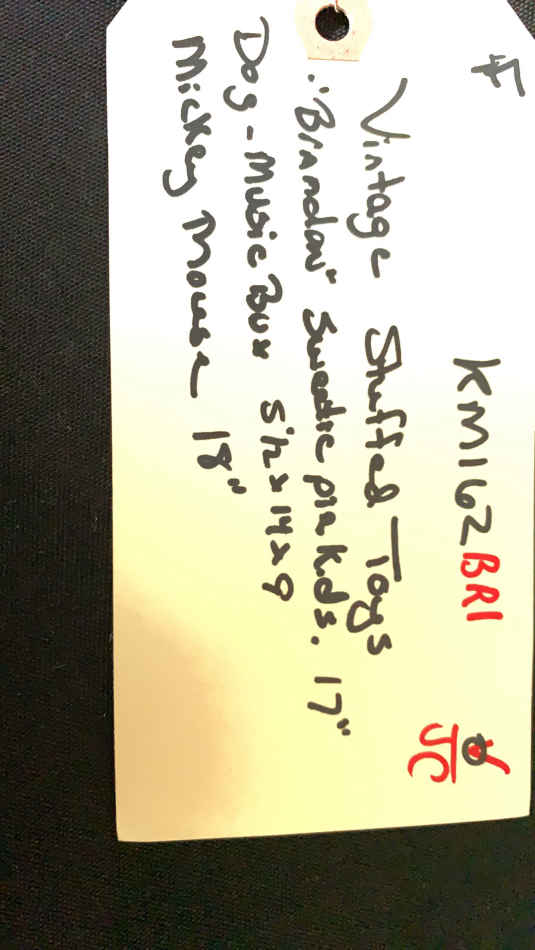 KM162 BRI
JC
Vintage Stuffed Toys
"Brandon" Sweetie pie kids. 17"
Dog - Music Box 5½ x 14 x 9
Mickey Mouse 18"